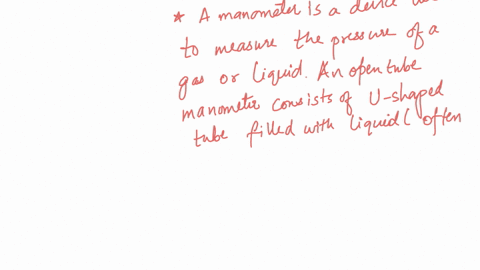 * A manometer is a device
to measure the pressure of a
gas or liquid. An open tube
manometer consists of U-shaped
tube filled with liquid ( often